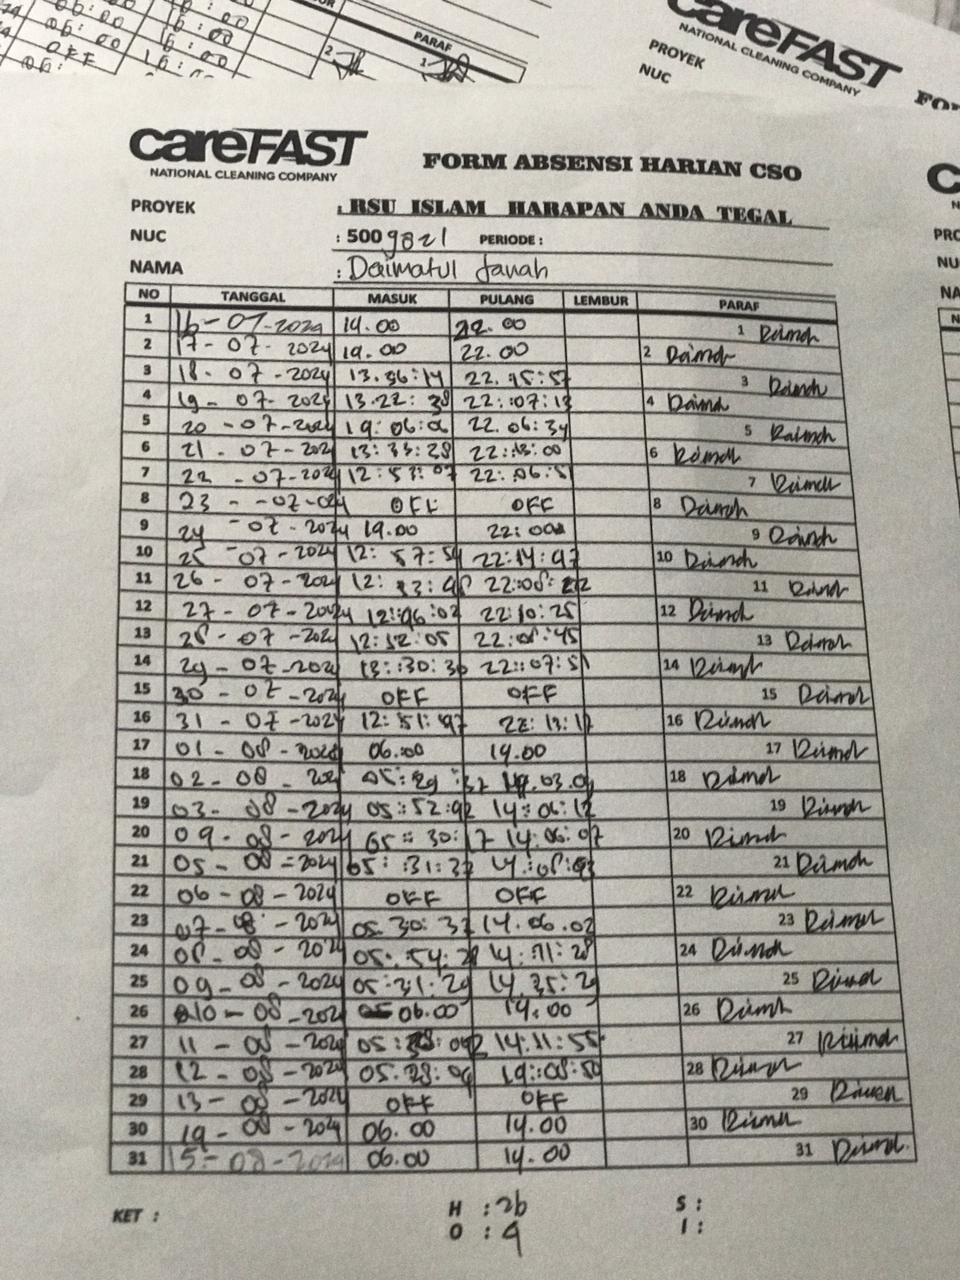 06:00
16:00
06:00
16:00
OFF
PARAF
2
1
careFAST
NATIONAL CLEANING COMPANY
PROYEK
NUC
careFAST
NATIONAL CLEANING COMPANY
FORM ABSENSI HARIAN CSO
PROYEK : RSU ISLAM HARAPAN ANDA TEGAL
NUC : 5009821 PERIODE :
NAMA : Daimatul Janah
NO TANGGAL MASUK PULANG LEMBUR PARAF
1 16-07-2024 14.00 22.00 1
2 17-07-2024 14.00 22.00 2
3 18-07-2024 13.36:14 22.45:57 3
4 19-07-2024 13.22:38 22:07:13 4
5 20-07-2024 14:06:06 22.06:34 5
6 21-07-2024 13:33:28 22:13:00 6
7 22-07-2024 12:53:07 22:06:51 7
8 23--07-024 OFF OFF 8
9 24-07-2024 14.00 22:00 9
10 25-07-2024 12:57:54 22:14:47 10
11 26-07-2024 12:53:48 22:08:22 11
12 27-07-2024 12:46:02 22:10:25 12
13 28-07-2024 12:52:05 22:08:45 13
14 29-07-2024 13:30:36 22:07:51 14
15 30-07-2024 OFF OFF 15
16 31-07-2024 12:51:47 22:13:17 16
17 01-08-2024 06:00 14.00 17
18 02-08-2024 05:29:32 14.03.04 18
19 03-08-2024 05:52:42 14:06:12 19
20 04-08-2024 05:30:17 14:06:07 20
21 05-08-2024 05:31:37 14:08:43 21
22 06-08-2024 OFF OFF 22
23 07-08-2024 05.30:37 14.06.02 23
24 08-08-2024 05:54:28 14:11:28 24
25 09-08-2024 05:31:29 14.35:29 25
26 10-08-2024 06.00 14.00 26
27 11-08-2024 14:11:55 27
28 12-08-2024 05.28:04 14:08:50 28
29 13-08-2024 OFF OFF 29
30 14-08-2024 06.00 14.00 30
31 15-08-2024 06.00 14.00 31
KET : H : 26 S :
O : 4 I :